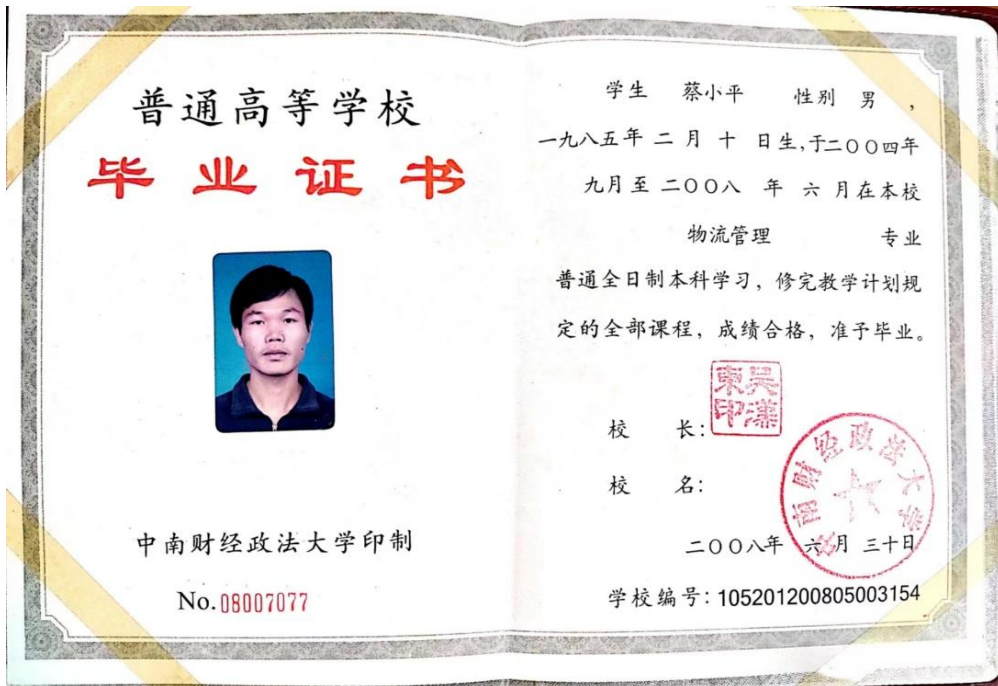 普通高等学校
毕业证书
中南财经政法大学印制
No.08007077
学生 蔡小平 性别 男 ,
一九八五年 二 月 十 日生,于二〇〇四年
九月至 二〇〇八 年 六 月在本校
物流管理 专业
普通全日制本科学习，修完教学计划规
定的全部课程，成绩合格，准予毕业。
校 长:
吴汉东印
校 名:
中南财经政法大学
二〇〇八年 六月 三十日
学校编号: 105201200805003154